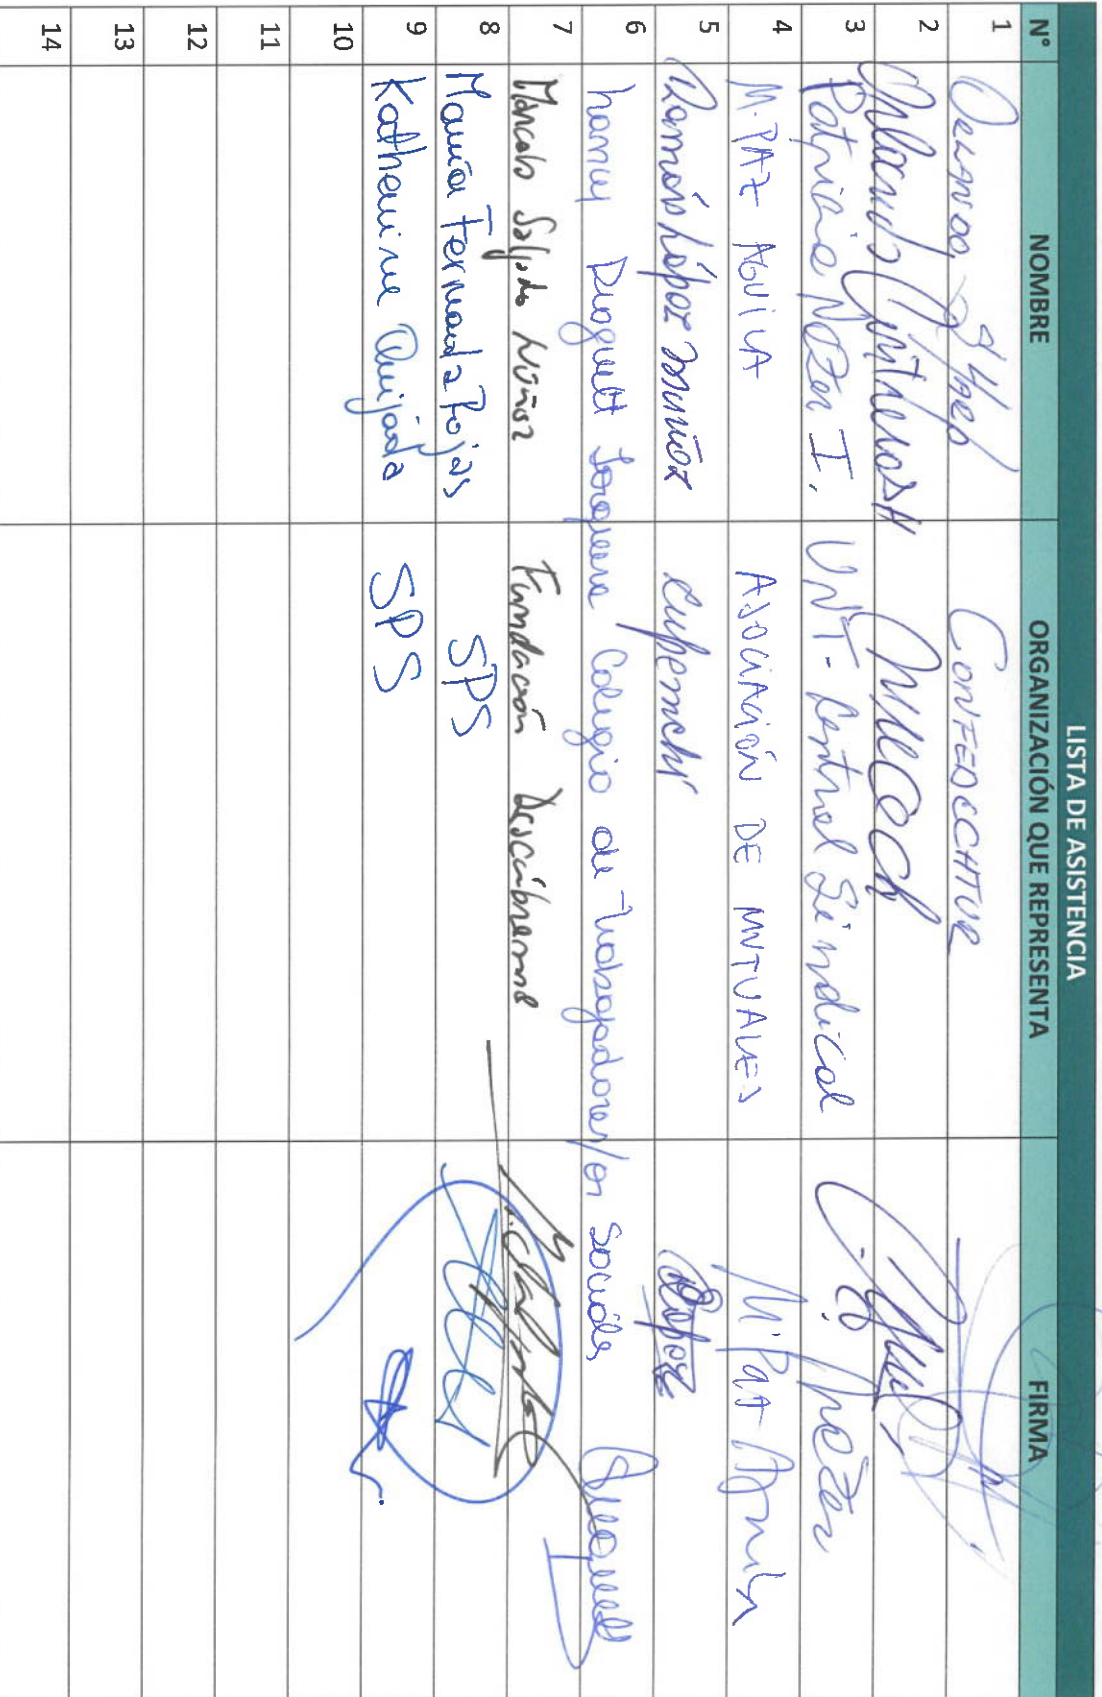 LISTA DE ASISTENCIA
N° NOMBRE ORGANIZACIÓN QUE REPRESENTA FIRMA
1 ORLANDO CONFEDECHTUR
2 Orlando
3 Patricia I. UNT- Central Sindical
4 M. PAZ AGUILA ASOCIACIÓN DE MUTUALES M. Paz Aguila
5 Ramón López Muñoz Cupemchi López
6 Colegio de Trabajadores/as Sociales
7 Marcelo Salgado Núñez Fundación Descúbreme
8 María Fernanda Rojas SPS
9 Katherine Quijada SPS
10
11
12
13
14